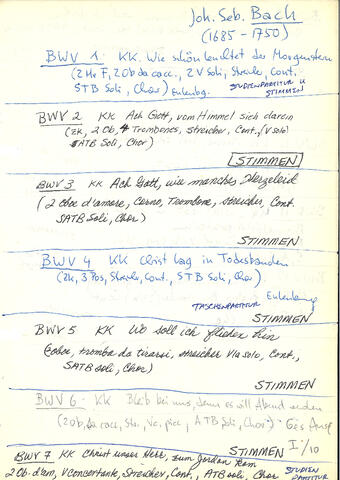 Joh. Seb. Bach
(1685 - 1750)
BWV 1 KK. Wie schön leuchtet der Morgenstern
(2 Hr F, 2 Ob da cacc., 2 V Soli, Streiche, Cont.
STB Soli, Chor) Eulenbg. STUDIENPARTITUR U
STIMMEN
BWV 2 KK Ach Gott, vom Himmel sich darein
(2 Ob, 4 Trombones, streicher, Cont., V solo)
SATB Soli, Chor)
STIMMEN
BWV 3 KK Ach Gott, wie manches Herzeleid
(2 oboe d'amore, Corno, Trombone, streicher, Cont.
SATB Soli, Chor)
STIMMEN
BWV 4 KK Christ lag in Todesbanden
(Zk, 3 Pos, Streiche, Cont., STB Soli, Chor)
Eulenburg
TASCHENPARTITUR
STIMMEN
BWV 5 KK Wo soll ich fliehen hin
(oboe, tromba da tirarsi, streicher Vla solo, Cont.,
SATB soli, Chor)
STIMMEN
BWV 6 KK Bleib bei uns, denn es will Abend werden
(2 Ob, da cacc, Str, Vc. picc, ATB Soli, Chor) Ges Ausg
I/10
STIMMEN
BWV 7 KK Christ unser Herr, zum Jordan kam
2 Ob. d'am, V Concertante, Streicher, Cont., ATB soli, Chor STUDIEN
PARTITUR